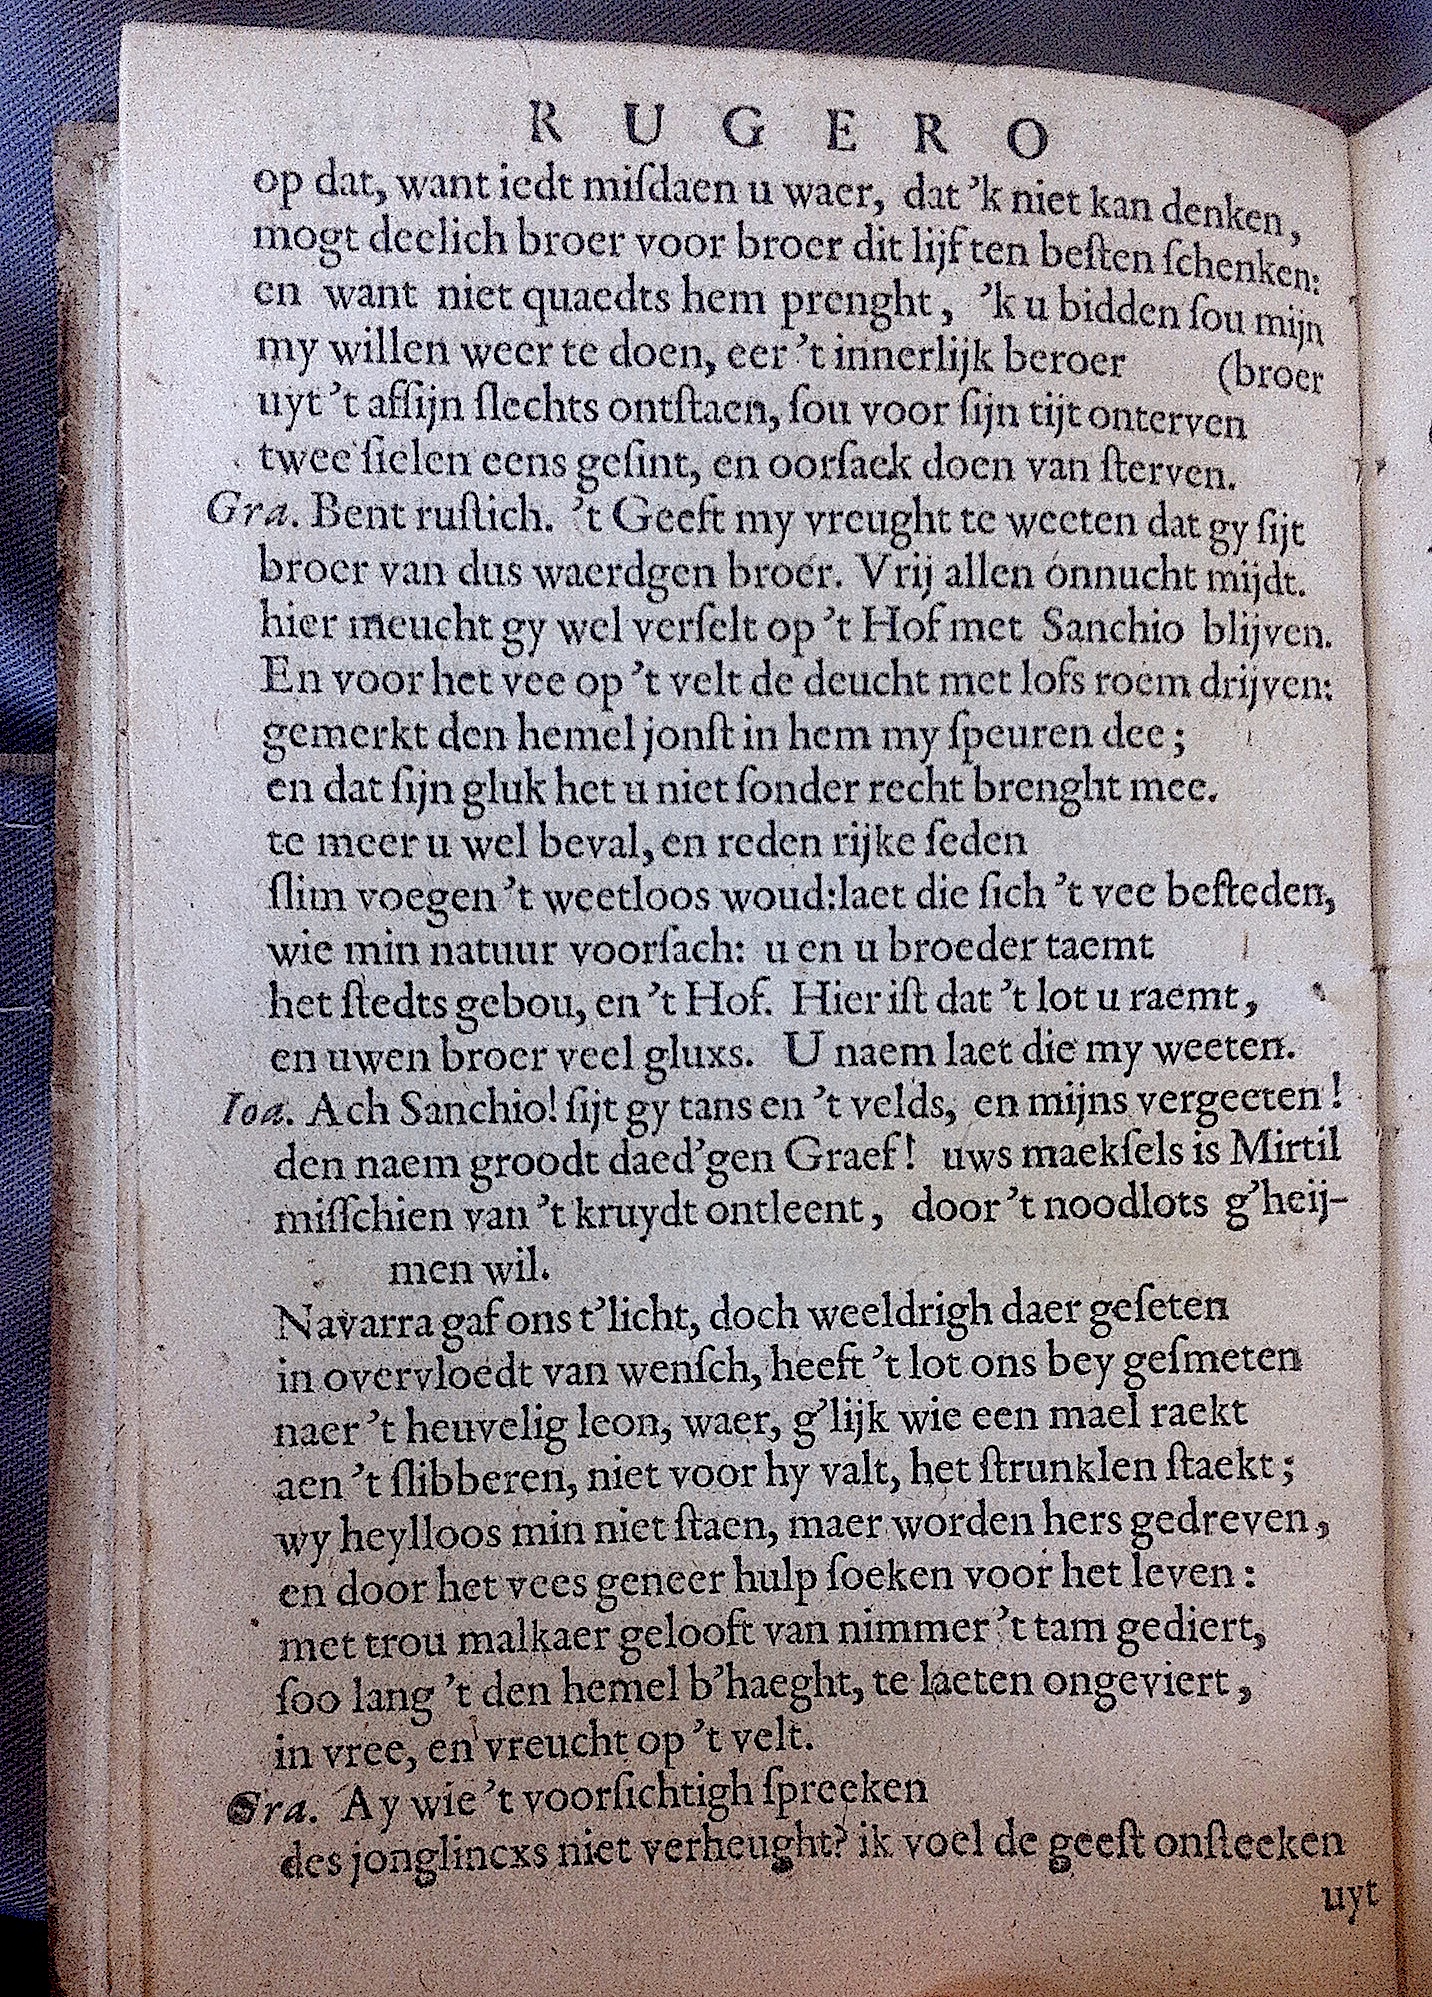 R U G E R O
op dat, want iedt miſdaen u waer, dat 'k niet kan denken,
mogt deelich broer voor broer dit lijf ten beſten ſchenken:
en want niet quaedts hem prenght, 'k u bidden ſou mijn
my willen weer te doen, eer 't innerlijk beroer (broer
uyt 't aſſijn ſlechts ontſtaen, ſou voor ſijn tijt onterven
twee ſielen eens geſint, en oorſaek doen van ſterven.
Gra. Bent ruſtich. 't Geeft my vreught te weeten dat gy ſijt
broer van dus waerdgen broer. Vrij allen onnucht mijdt.
hier meucht gy wel verſelt op 't Hof met Sanchio blijven.
En voor het vee op 't velt de deucht met lofs roem drijven:
gemerkt den hemel jonſt in hem my ſpeuren dee;
en dat ſijn gluk het u niet ſonder recht brenght mee.
te meer u wel beval, en reden rijke ſeden
ſlim voegen 't weetloos woud:laet die ſich 't vee beſteden,
wie min natuur voorſach: u en u broeder taemt
het ſtedts gebou, en 't Hof. Hier iſt dat 't lot u raemt,
en uwen broer veel gluxs. U naem laet die my weeten.
Ioa. Ach Sanchio! ſijt gy tans en 't velds, en mijns vergeeten!
den naem groodt daed'gen Graef! uws maekſels is Mirtil
miſſchien van 't kruydt ontleent, door 't noodlots g'heij-
men wil.
Navarra gaf ons t'licht, doch weeldrigh daer geſeten
in overvloedt van wenſch, heeft 't lot ons bey geſmeten
naer 't heuvelig leon, waer, g'lijk wie een mael raekt
aen 't ſlibberen, niet voor hy valt, het ſtrunklen ſtaekt;
wy heylloos min niet ſtaen, maer worden hers gedreven,
en door het vees geneer hulp ſoeken voor het leven:
met trou malkaer gelooft van nimmer 't tam gediert,
ſoo lang 't den hemel b'haeght, te laeten ongeviert,
in vree, en vreucht op 't velt.
Gra. Ay wie 't voorſichtigh ſpreeken
des jonglincxs niet verheught? ik voel de geeſt onſteeken
uyt